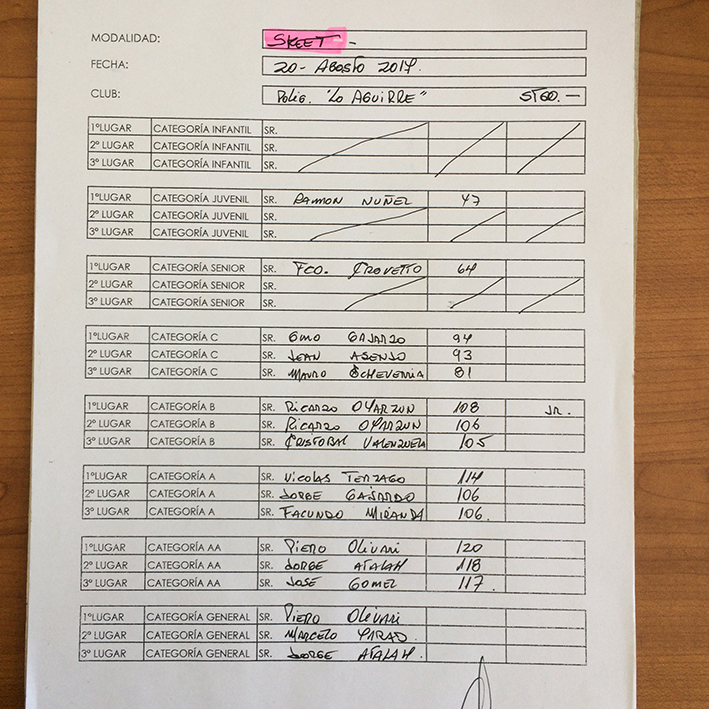 MODALIDAD: SKEET -
FECHA: 20 - AGOSTO 2017.
CLUB: POLIG. "LO AGUIRRE" STGO. -
1ºLUGAR CATEGORÍA INFANTIL SR.
2º LUGAR CATEGORÍA INFANTIL SR.
3º LUGAR CATEGORÍA INFANTIL SR.
1ºLUGAR CATEGORÍA JUVENIL SR. RAMON NUÑEZ 47
2º LUGAR CATEGORÍA JUVENIL SR.
3º LUGAR CATEGORÍA JUVENIL SR.
1ºLUGAR CATEGORÍA SENIOR SR. FCO. CROVETTO 64
2º LUGAR CATEGORÍA SENIOR SR.
3º LUGAR CATEGORÍA SENIOR SR.
1ºLUGAR CATEGORÍA C SR. GMO GAJARDO 94
2º LUGAR CATEGORÍA C SR. JEAN ASENJO 93
3º LUGAR CATEGORÍA C SR. MAURO ECHEVERRIA 81
1ºLUGAR CATEGORÍA B SR. RICARDO OYARZUN 108 JR.
2º LUGAR CATEGORÍA B SR. RICARDO OYARZUN 106
3º LUGAR CATEGORÍA B SR. CRISTOBAL VALENZUELA 105
1ºLUGAR CATEGORÍA A SR. NICOLAS TERZAGO 114
2º LUGAR CATEGORÍA A SR. JORGE GAJARDO 106
3º LUGAR CATEGORÍA A SR. FACUNDO MIRANDA 106.
1ºLUGAR CATEGORÍA AA SR. PIERO OLIVARI 120
2º LUGAR CATEGORÍA AA SR. JORGE ATALAH 118
3º LUGAR CATEGORÍA AA SR. JOSÉ GOMEZ 117.
1ºLUGAR CATEGORÍA GENERAL SR. PIERO OLIVARI
2º LUGAR CATEGORÍA GENERAL SR. MARCELO YARAD
3º LUGAR CATEGORÍA GENERAL SR. JORGE ATALAH.